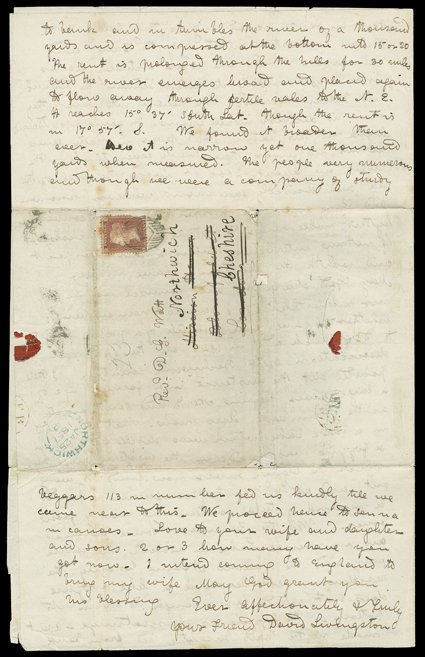 to bank and in tumbles the river of a thousand
yards and is compressed at the bottom into 15 or 20
The rent is prolonged through the hills for 30 miles
and the river emerges broad and placed again
to flow away through fertile vales to the N. E.
It reaches 15° 37' South Lat. though the rent is
in 17° 57' S. We found it broader than
ever. it is narrow yet one thousand
yards when measured. The people very numerous
and though we were a company of sturdy
Revd. D. G. Watt
Northwich
Mission
Cheshire
NORTHWICH
beggars 113 in number fed us kindly till we
came near to this. We proceed hence to Senna
in canoes. Love to your wife and daughter
and sons. 2 or 3 how many have you
got now. I intend coming to England to
bring my wife May God grant you
his blessing Ever affectionately & truly
your Friend David Livingston